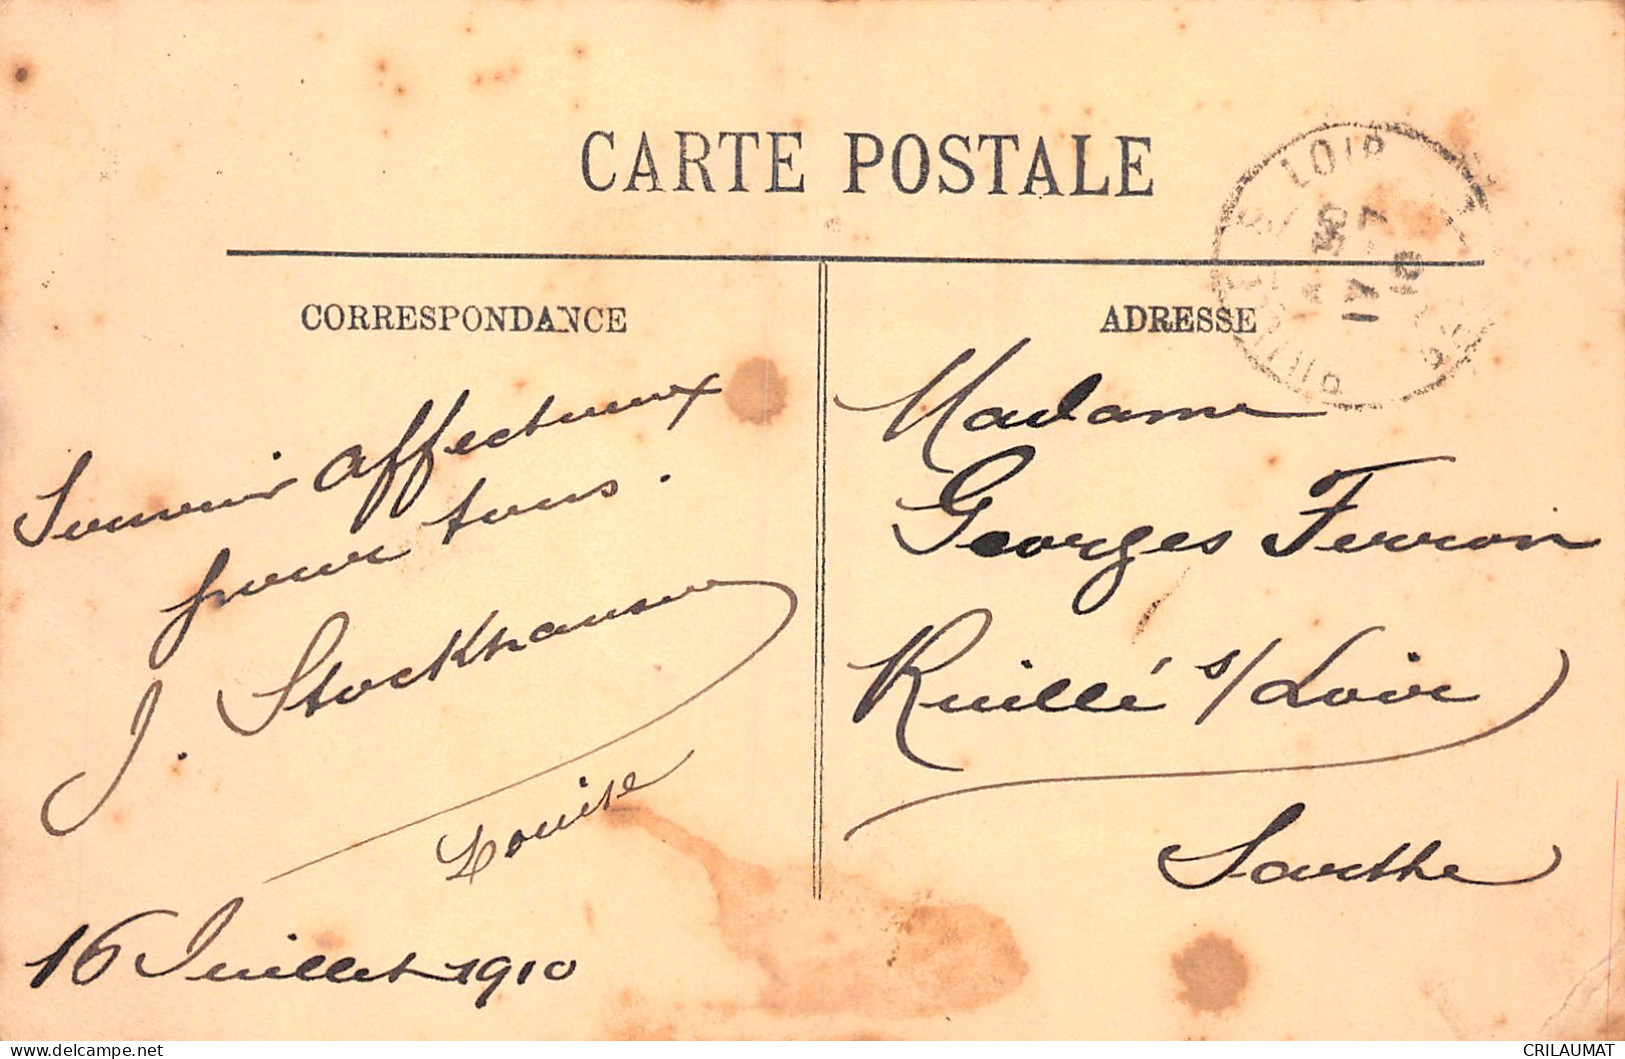 CARTE POSTALE
CORRESPONDANCE
Souvenir affectueux
pour tous.
J. Stockhausen
Louise
16 Juillet 1910
ADRESSE
Madame
Georges Ferron
Ruillé s/ Loir
Sarthe
LOIR
17 -7
10
CRILAUMAT